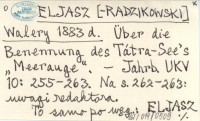 ELJASZ [-RADZIKOWSKI]
Walery 1883 d. Über die
Benennung des Tátra-See's
„Meerauge". – Jahrb. UKV
10: 255-263. Na s. 262-263:
uwagi redaktora.
To samo po węg.: ELJASZ